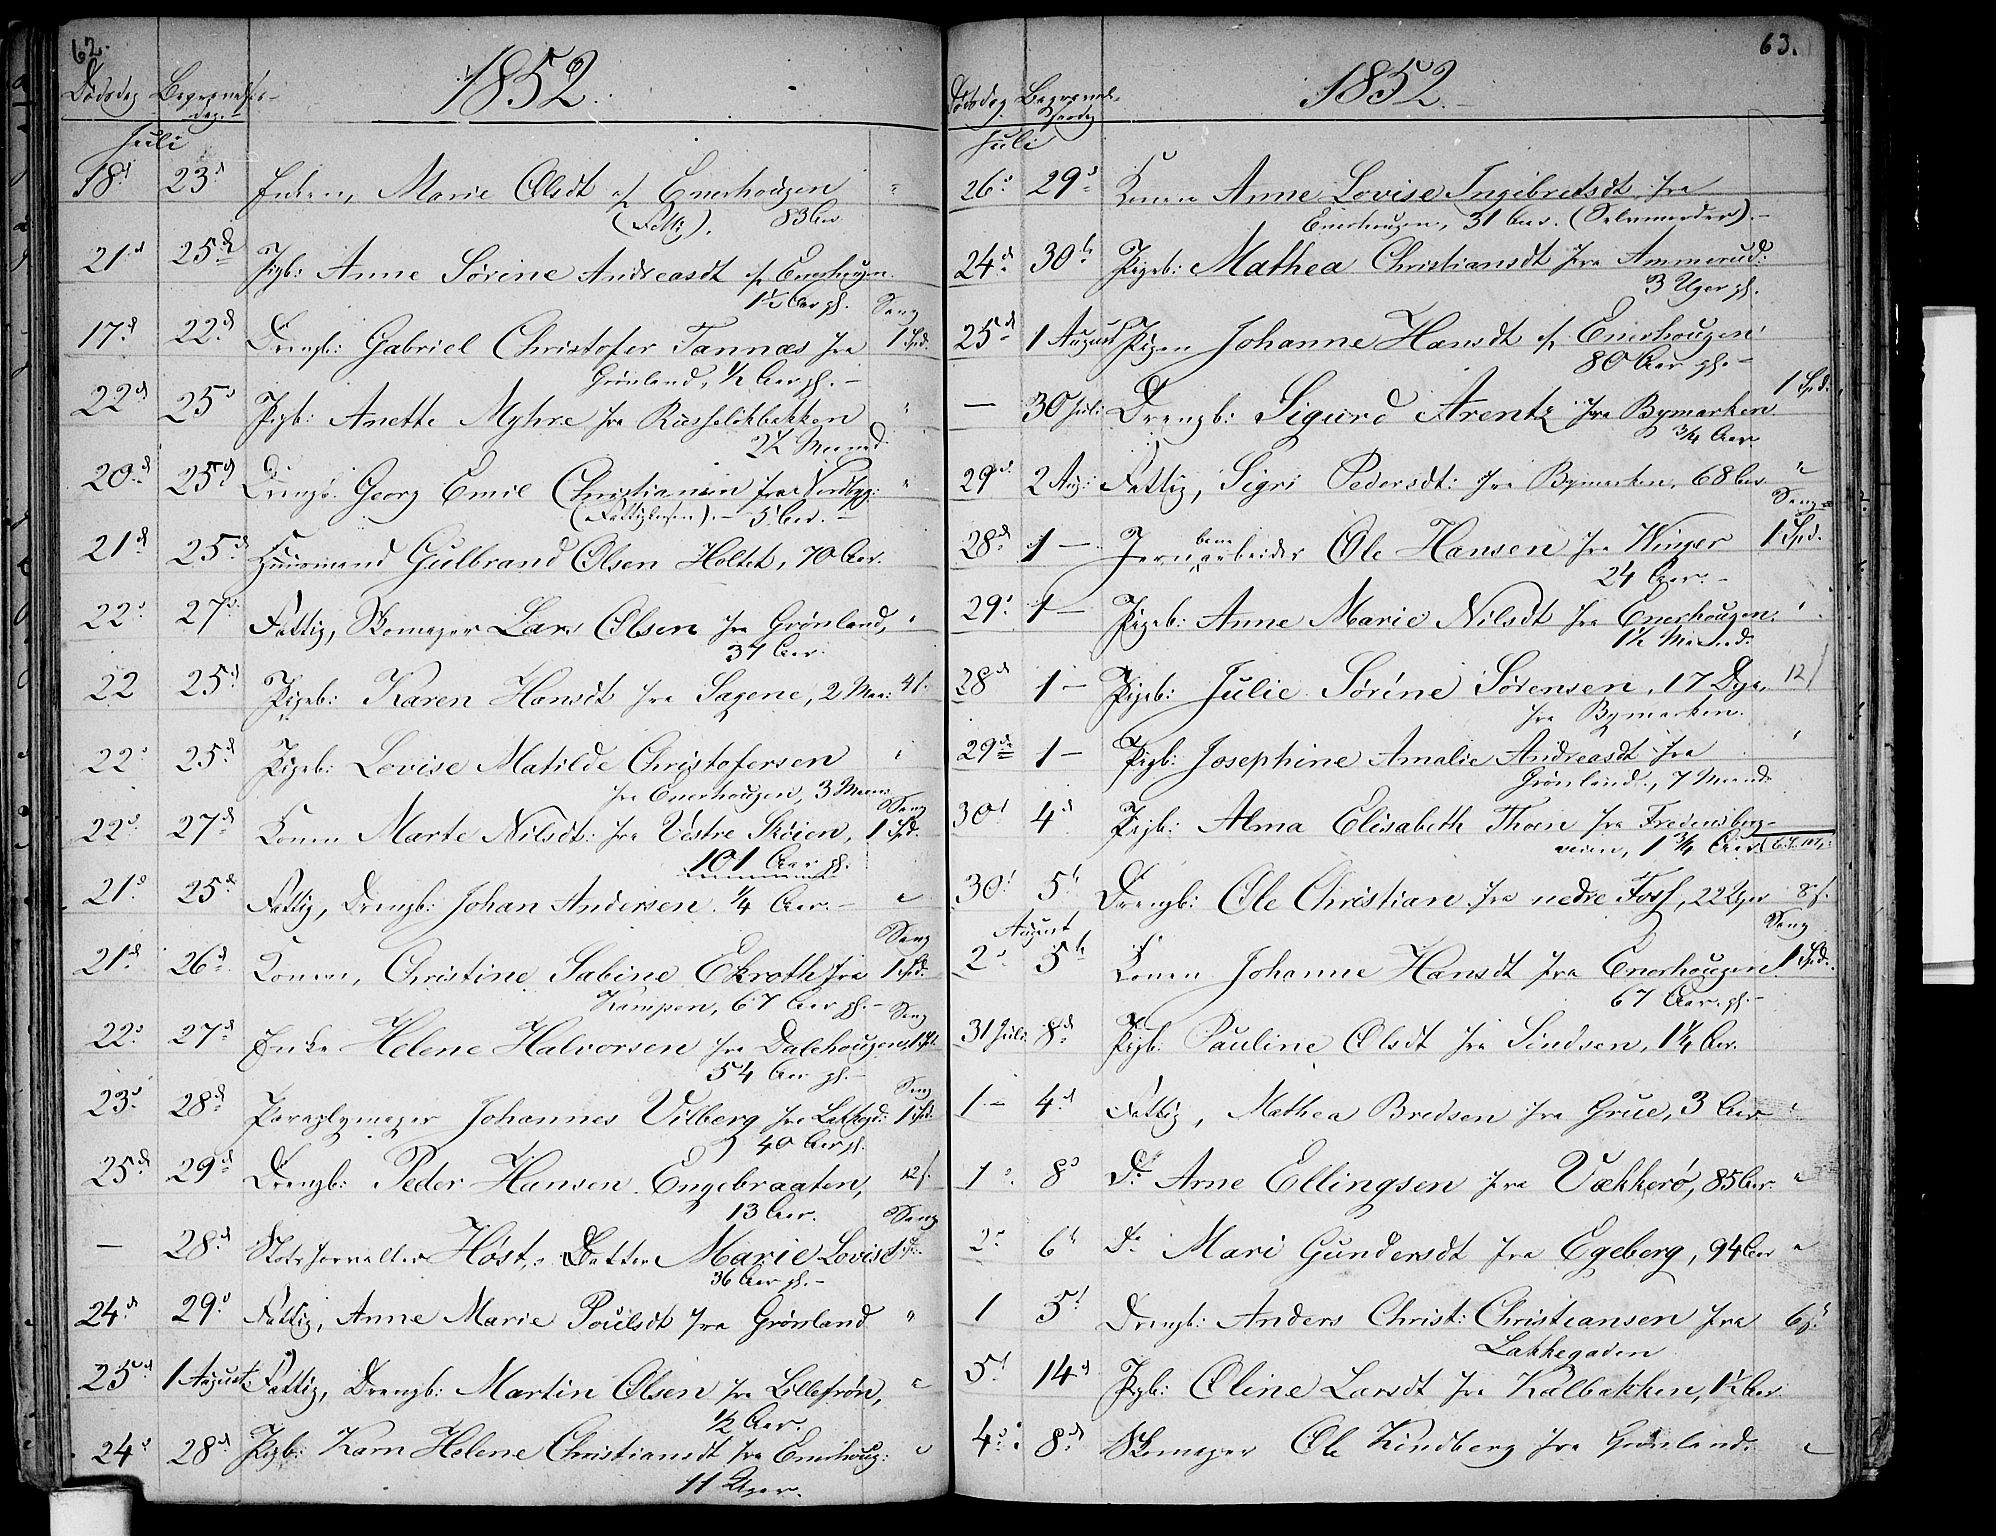 62.
1852.
Dødsdag Begravelses-
dag.
Juli
18d 23d Enken, Marie Olsdt af Enerhougen "
(Fattig). 83 Aar
21d 25de Pigb: Anne Sørine Andreasdt af Enerhougen.
1½ Aar gl. Seng
17d 22d Drengb: Gabriel Christofer Tannæs fra 1 Spd.
Grønland, ½ Aar gl. –
22d 25d Pigb: Anette Myhre fra Ruseløkbakken "
2½ Maaned
20d 25d Drengb: Georg Emil Christiansen fra Nordbyg: "
5 Aar. –
21d 25d Huusmand Gulbrand Olsen Holtet, 70 Aar.
22d 27d Fattig, Skomager Lars Olsen fra Grønland, "
37 Aar.
22 25d Pigeb: Karen Hansdt fra Sagene, 2 Maa:
22d 25d Pigeb: Lovise Matilde Christofersen "
fra Enerhougen, 3 Maan: Seng
22d 27d Konen Marte Nilsdt: fra Vestre Skøien, 1 Spd.
101 Aar gl.
21d 25d Fattig, Drengb: Johan Andersen ¼ Aar. –
Seng
21d 26d Konen, Christine Sabine Ekroth fra 1 Spd.
Kampen, 67 Aar gl. – Seng
22d 27d Enke Helene Halvorsen fra Dalehougen 1 Spd.
54 Aar gl. – Seng
23d 28d Paraplymager Johannes Vilberg fra Lakkegd: 1 Spd.
40 Aar gl.
25d 29d Drengb: Peder Hansen Engebraaten, 12 s.
13 Aar. Seng
– 28d Høst,s Datter Marie Lovise
36 Aar gl. –
24d 29d Fattig, Anne Marie Poulsdt fra Grønland "
25d 1 August Fattig, Drengb: Martin Olsen fra Lillefrøn, "
½ Aar.
24d 28d Pigb: Karn Helene Christiansdt fra Enerhoug: "
11 Uger.
63.
1852.
Dødsdag. Begravel-
sesdag
Juli
26d 29d Konen Anne Lovise Ingebretsdt fra
Enerhougen, 31 Aar. (Selvmorder). –
24d 30te Pigeb: Mathea Christiansdt fra Ammerud.
3 Uger gl.
25d 1 August Pigen Johanne Hansdt af Enerhougen
80 Aar gl. –
1 Spd.
– 30 Juli Drengb: Sigurd Arentz fra Bymarken
¾ Aar
29d 2 Aug: Fattig, Sigri Pedersdt: fra Bymarken, 68 Aar "
Seng
28d 1 – Jernbanearbeider Ole Hansen fra Winger 1 Spd.
24 Aar. –
29d 1 – Pigeb: Anne Marie Nilsdt fra Enerhougen.
1½ Maaned.
28d 1 – Pigeb: Julie Sørine Sørensen, 17 Dge, 12 s
fra Bymarken.
29de 1 – Pigb: Josephine Amalie Andreasdt fra
Grønland, 7 Maaned
30t 4d Pigb: Alma Elisabeth Thoen fra Fredensborg-
veien, 1¾ Aar
30t 5t Drengb: Ole Christian fra nedre Foss, 22 Uger 8 s.
August Seng
2d 5te Konen Johanne Hansdt fra Enerhougen 1 Spd.
67 Aar gl. –
31 Juli 8d Pigb: Pauline Olsdt fra Sindsen, 1¼ Aar.
1 – 4d Fattig, Mathea Bredsen fra Grue, 3 Aar
1d 8d Do Arne Ellingsen fra Vækkerø, 85 Aar. "
2d 6t Do Mari Gundersdt fra Egeberg, 94 Aar "
1 5t Drengb: Anders Christ: Christiansen fra
Lakkegaden
5t 14d Pigb: Oline Larsdt fra Kalbakken, 1½ Aar
4d 8d Skomager Ole Kindberg fra Grønland. "